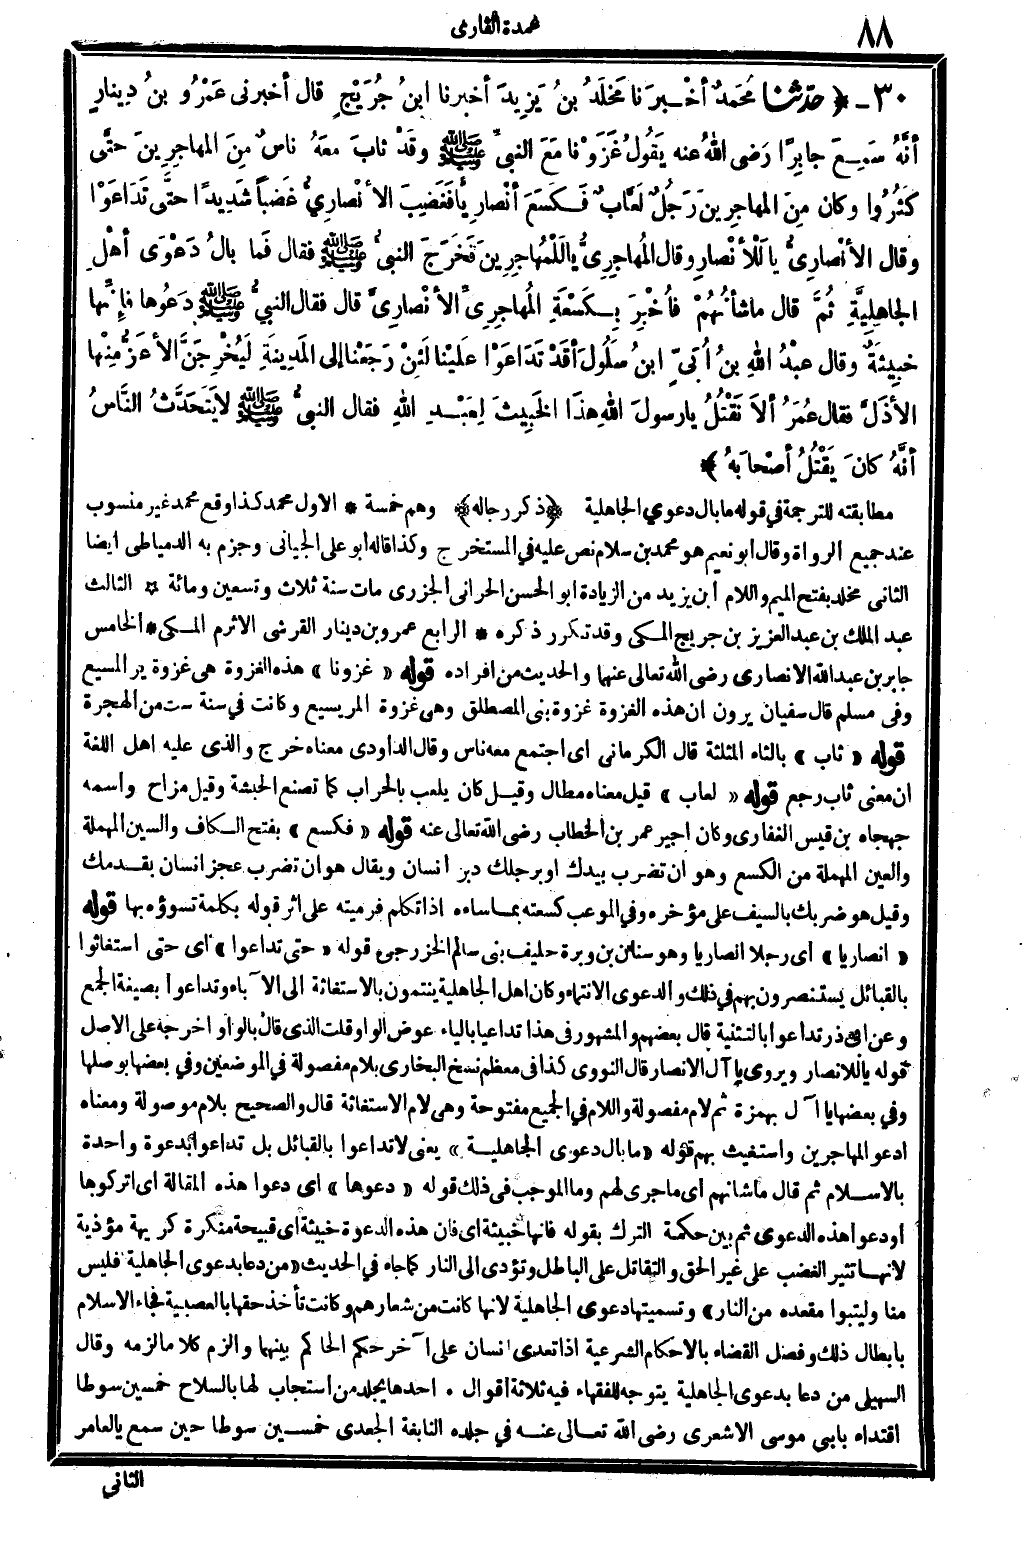 ٨٨
عمدة القارى
٣٠ـ ﴿ حدثنا مُحمدٌ أخْـبرَنا مَخْلَدُ بنُ يَزِيدَ أخبرنا ابنُ جُرَيْجٍ قال أخبرنى عَمْرُو بنُ دِينارٍ
أنَّهُ سَمِـعَ جابِرًا رَضى اللهُ عنه يَقُولُ غَزَوْنا مَعَ النبىِّ ﷺ وقَدْ ثابَ معَهُ ناسٌ مِنَ المُهاجرِينَ حتَّى
كَثُرُوا وكان مِنَ المُهاجرِينَ رَجُلٌ لَعَّابٌ فَـكَسَعَ أنْصارِيًّا فَغَضِبَ الأنْصارِيُّ غَضَباً شَدِيدًا حتَّى تَدَاعَوْا
وقال الأنْصارِىُّ يا لَلْأنْصارِ وقال المُهاجِرِىُّ يا لَلْمُهاجِرِينَ فَخَرَجَ النبىُّ ﷺ فقال فَما بالُ دَعْوَى أهْلِ
الجاهِليَّةِ ثُمَّ قال ماشأْنُهُمْ فأُخْبِرَ بِـكَسْعَةِ المُهاجِرِىِّ الأنْصارِىَّ قال فقال النبىُّ ﷺ دَعُوها فإنَّها
خبِيثَةٌ وقال عبْدُ اللهِ بنُ أُبَىٍّ ابنُ سَلُولَ أقَدْ تَدَاعَوْا علَيْنا لَئِنْ رجَعْنا إلى المَدِينةِ لَيُخْرِجَنَّ الأعَزُّ مِنْها
الأذَلَّ فقال عُمَرُ ألاَ نَقْتُلُ يا رسولَ اللهِ هذَا الخَبِيثَ لِعَبْـدِ اللهِ فقال النبىُّ ﷺ لا يَتَحَدَّثُ النَّاسُ
أنَّهُ كانَ يَقْتُلُ أصْحابَهُ ﴾
مطابقته للترجمة فى قوله ما بال دعوي الجاهلية ﴿ ذكر رجاله ﴾ وهم خمسة * الاول محمد كذا وقع محمد غير منسوب
عند جميع الرواة وقال ابو نعيم هو محمد بن سلام نص عليه في المستخرج وكذا قاله ابو على الجيانى وجزم به الدمياطى ايضا
الثانى مخلد بفتح الميم واللام ابن يزيد من الزيادة ابو الحسن الحرانى الجزرى مات سنة ثلاث وتسعين ومائة * الثالث
عبد الملك بن عبد العزيز بن جريج المـكى وقد تـكرر ذكره * الرابع عمرو بن دينار القرشى الاثرم المـكى * الخامس
جابر بن عبد الله الانصارى رضى الله تعالى عنهما والحديث من افراده قوله « غزونا » هذه الغزوة هى غزوة يرالمسيع
وفى مسلم قال سفيان يرون ان هذه الغزوة غزوة بنى المصطلق وهى غزوة المريسيع وكانت في سنة ست من الهجرة
قوله « ثاب » بالثاء المثلثة قال الكرمانى اى اجتمع معه ناس وقال الداودى معناه خرج والذى عليه اهل اللغة
ان معنى ثاب رجع قوله « لعاب » قيل معناه مطال وقيـل كان يلعب بالحراب كما تصنع الحبشة وقيل مزاح واسمه
جهجاه بن قيس الغفارى وكان اجير عمر بن الخطاب رضى الله تعالى عنه قوله « فكسع » بفتح الـكاف والسين المهملة
والعين المهملة من الكسع وهو ان تضرب بيدك او برجلك دبر انسان ويقال هو ان تضرب عجز انسان بقـدمك
وقيل هو ضربك بالسيف على مؤخره وفي الموعب كسعته بمـا ساءه اذا تكلم فرميته على اثر قوله بكلمة تسوؤه بها قوله
« انصاريا » اى رجلا انصاريا وهو سنان بن وبرة حليف بنى سالم الخزرجى قوله « حتى تداعوا » اى حتى استغاثوا
بالقبائل يستنصرون بهم في ذلك والدعوى الانتماء وكان اهل الجاهلية ينتمون بالاستغاثة الى الآباء وتداعوا بصيغة الجمع
وعن ابى ذر تداعوا بالتثنية قال بعضهم والمشهور فى هذا تداعيا بالياء عوض الواو قلت الذى قال بالواو اخرجه على الاصل
قوله ياللانصار ويروى يا آل الانصار قال النووى كذا فى معظم نسخ البخارى بلام مفصولة في الموضعين وفي بعضها بوصلها
وفي بعضها يا آل بهمزة ثم لام مفصولة واللام في الجميع مفتوحة وهى لام الاستغاثة قال والصحيح بلام موصولة ومعناه
ادعو المهاجرين واستغيث بهم قوله « ما بال دعوى الجاهليـة » يعنى لا تداعوا بالقبائل بل تداعوا بدعوة واحدة
بالاسـلام ثم قال ما شانهم اى ما جرى لهم وما الموجب فى ذلك قوله « دعوها » اى دعوا هذه المقالة اى اتركوها
او دعوا هذه الدعوى ثم بين حكمة الترك بقوله فانها خبيثة اى فان هذه الدعوة خبيثة اى قبيحة منكرة كريهة مؤذية
لانهـا تثير الغضب على غير الحق والتقاتل على الباطل وتؤدى الى النار كما جاء في الحديث « من دعا بدعوى الجاهلية فليس
منا وليتبوا مقعده من النار » وتسميتها دعوى الجاهلية لانها كانت من شعارهم وكانت تأخذ حقها بالعصبية فجاء الاسلام
بابطال ذلك وفصل القضاء بالاحكام الشرعية اذا تعدى انسان على آخر حكم الحاكم بينهما والزم كلا ما لزمه وقال
السهيلى من دعا بدعوى الجاهلية يتوجه للفقهاء فيه ثلاثة اقوال . احدها يجلد من استجاب لها بالسلاح خمسين سوطا
اقتداء بابى موسى الاشعرى رضى الله تعـالى عنـه في جلده النابغة الجعدى خمسـين سوطا حين سمع يالعامر
الثانى